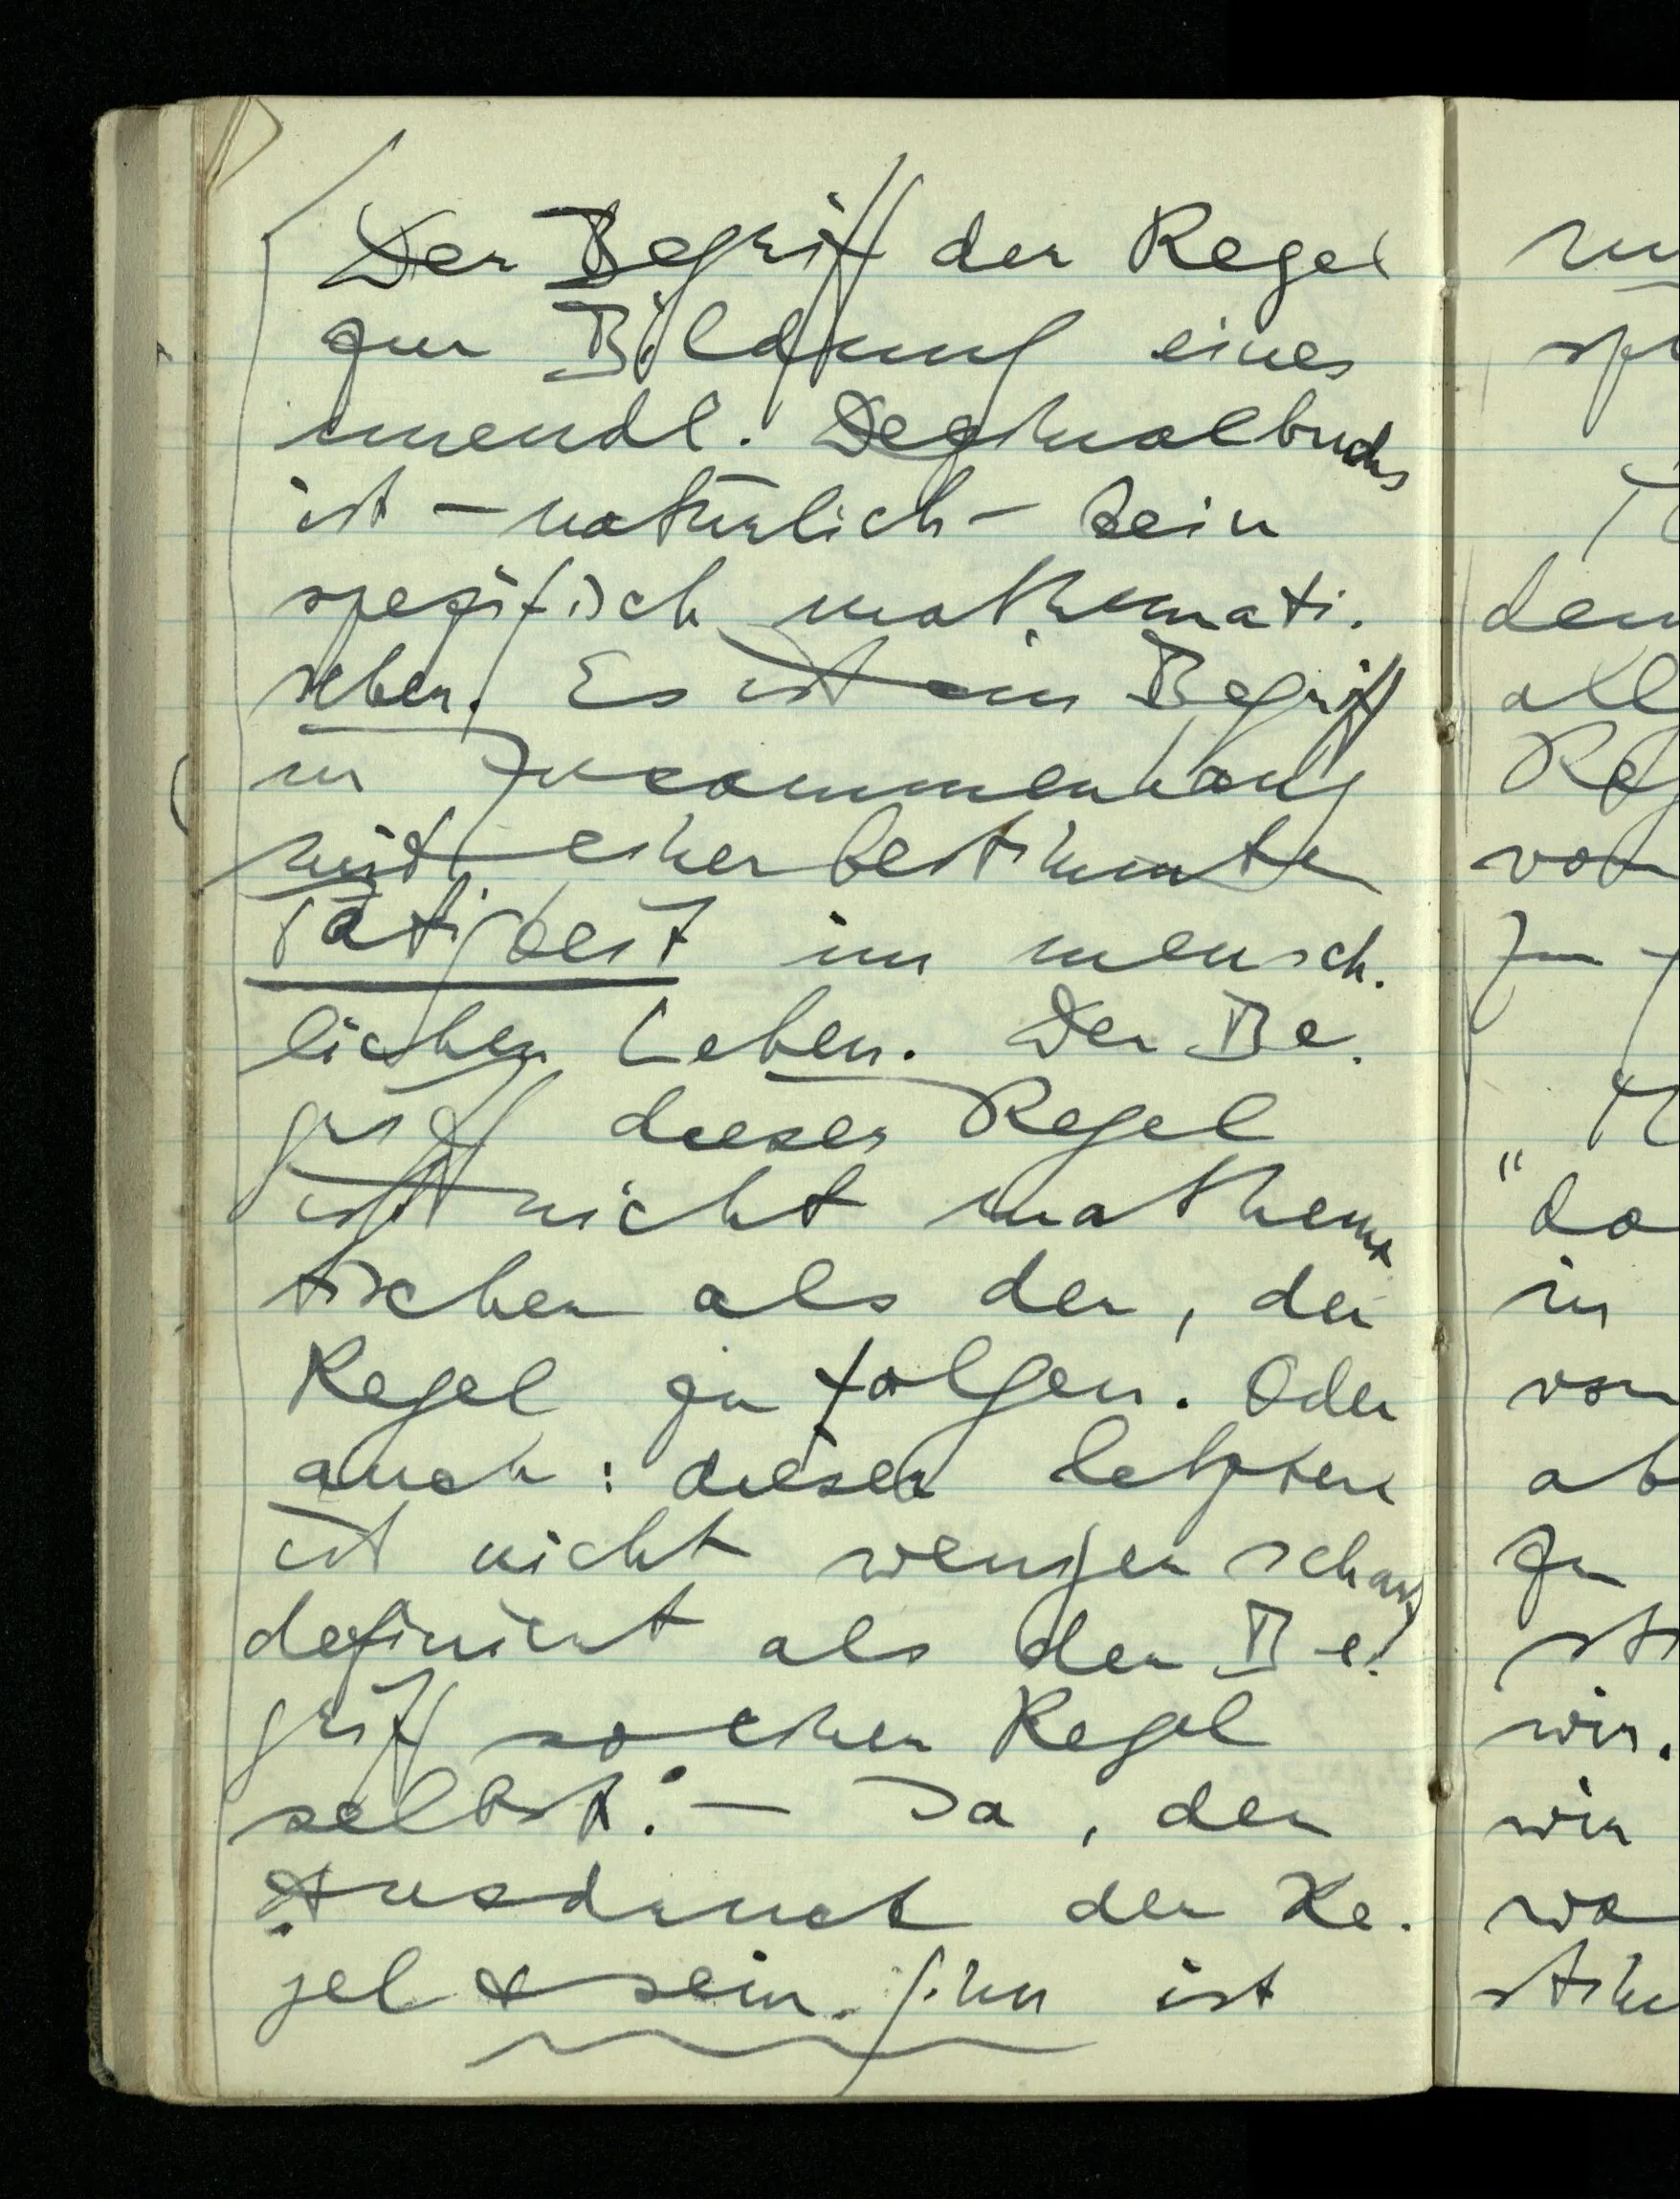 Der Begriff der Regel
zur Bildung eines
unendl. Dezimalbruchs
ist – natürlich – kein
spezifisch mathemati-
scher. Es ist ein Begriff
im Zusammenhang
mit einer bestimmten
Tätigkeit im mensch-
lichen Leben. Der Be-
griff dieser Regel
ist nicht mathema
tischer als der, der
Regel zu folgen. Oder
auch: dieser letztere
ist nicht weniger scharf
definiert als der Be-
griff so einer Regel
selbst. – Ja, der
Ausdruck der Re-
gel & sein Sinn ist
dem
all
Reg
von
"da
in
von
ab
zu
st
wir.
wir
wa
stim